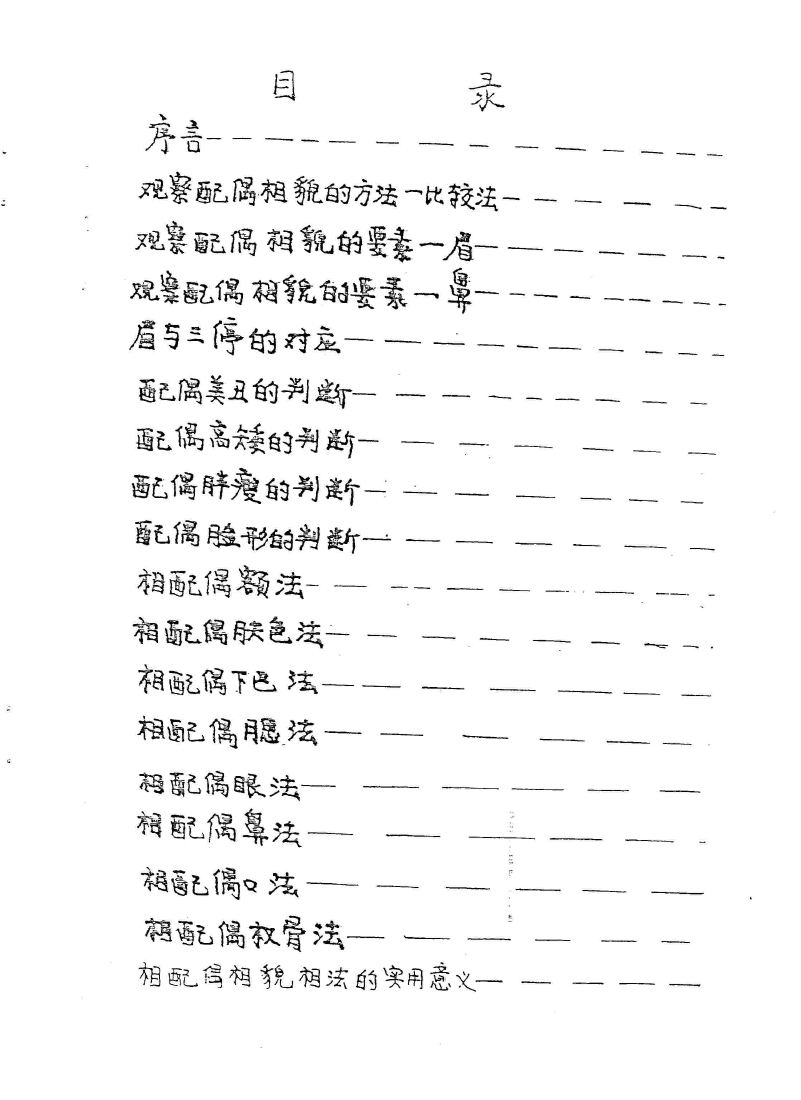 目 录
序言— — — — — — — — — — — — —
观察配偶相貌的方法一比较法— — — — — —
观察配偶相貌的要素一眉— — — — — — — —
观察配偶相貌的要素一鼻— — — — — — — —
眉与三停的对应— — — — — — — — — —
配偶美丑的判断— — — — — — — — —
配偶高矮的判断— — — — — — — —
配偶胖瘦的判断— — — — — — — —
配偶脸形的判断— — — — — — — —
相配偶额法— — — — — — — — — —
相配偶肤色法— — — — — — — — —
相配偶下巴法— — — — — — — —
相配偶腮法— — — — — — —
相配偶眼法— — — — — — — —
相配偶鼻法— — — — — — —
相配偶口法— — — — — — —
相配偶权骨法— — — — — — — —
相配偶相貌相法的实用意义— — — — — —